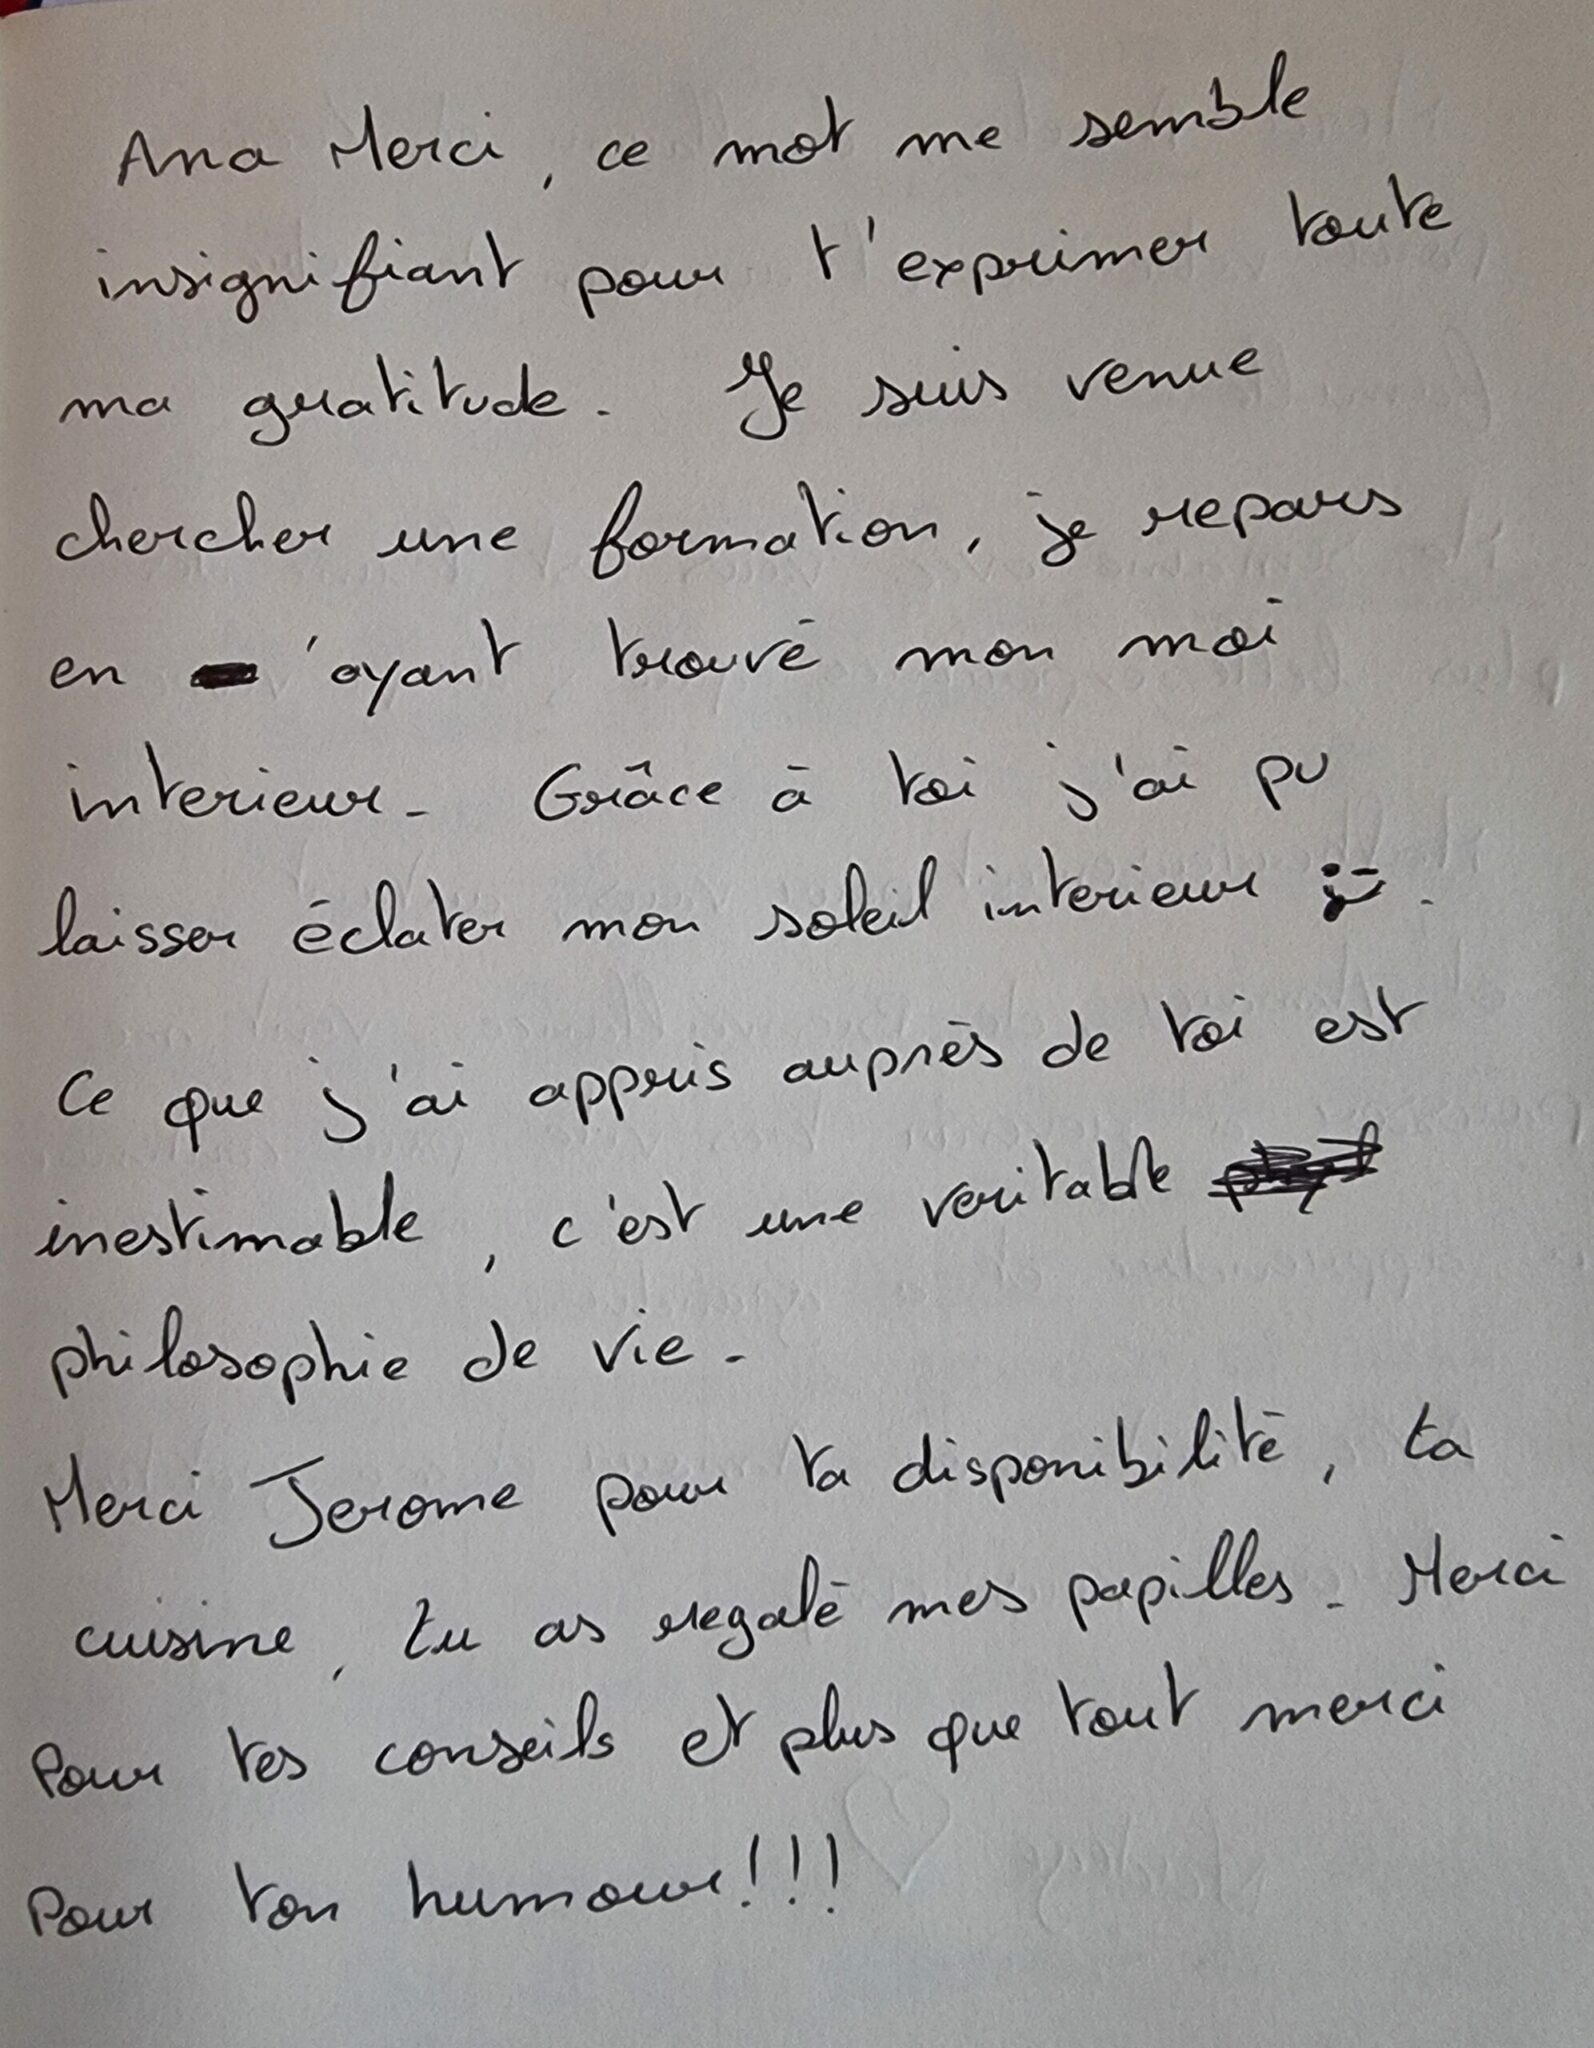 Ana Merci, ce mot me semble
insignifiant pour t'exprimer toute
ma gratitude. Je suis venue
chercher une formation, je repars
en 'ayant trouvé mon moi
interieur. Grâce à toi j'ai pu
laisser éclater mon soleil interieur :).
Ce que j'ai appris auprès de toi est
inestimable, c'est une veritable
philosophie de vie.
Merci Jerome pour ta disponibilité, ta
cuisine, tu as regalé mes papilles. Merci
Pour tes conseils et plus que tout merci
Pour ton humour!!!